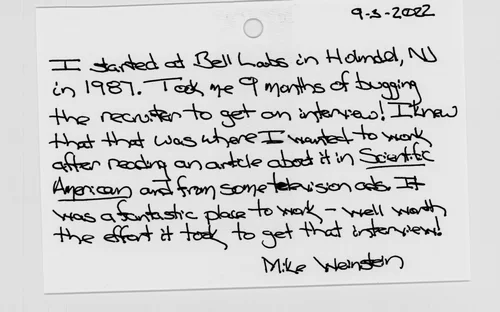 9-3-2022
I started at Bell Labs in Holmdel, NJ
in 1987. Took me 9 months of bugging
the recruiter to get an interview! I knew
that that was where I wanted to work
after reading an article about it in Scientific
American and from some television ads. It
was a fantastic place to work - well worth
the effort it took to get that interview!
Mike Weinstein